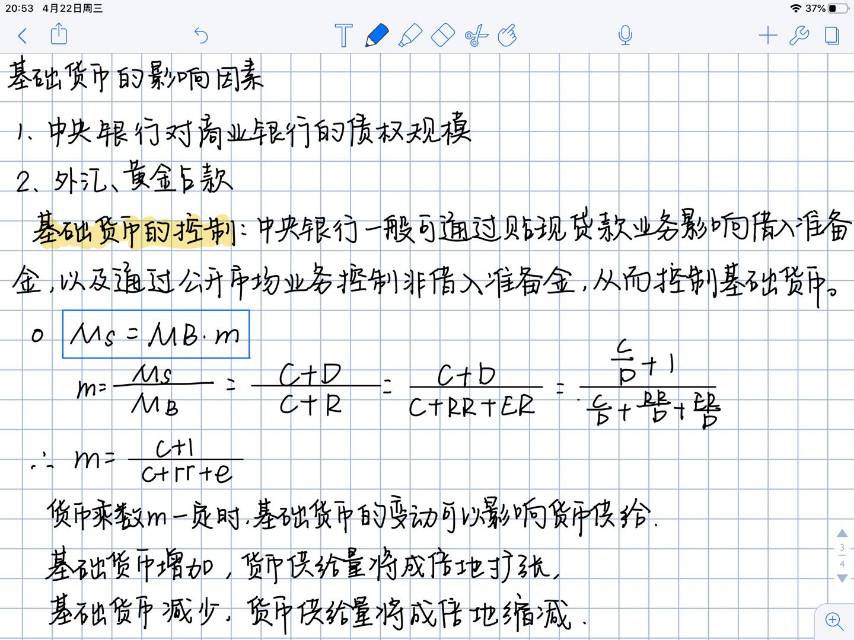 20:53 4月22日周三
37%
T
基础货币的影响因素
1、中央银行对商业银行的债权规模
2、外汇、黄金占款
基础货币的控制:中央银行一般可通过贴现贷款业务影响借入准备
金,以及通过公开市场业务控制非借入准备金,从而控制基础货币。
Ms = MB·m
m = Ms/MB = (C+D)/(C+R) = (C+D)/(C+RR+ER) = (C/D+1)/(C/D+RR/D+ER/D)
∴ m = (c+1)/(c+rr+e)
货币乘数m一定时,基础货币的变动可以影响货币供给.
基础货币增加,货币供给量将成倍地扩张,
基础货币减少,货币供给量将成倍地缩减.
3
4